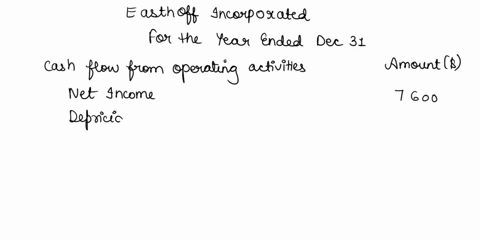 Easthoff Incorporated
For the Year Ended Dec 31
Cash flow from operating activities Amount($)
Net Income 7600
Depricia